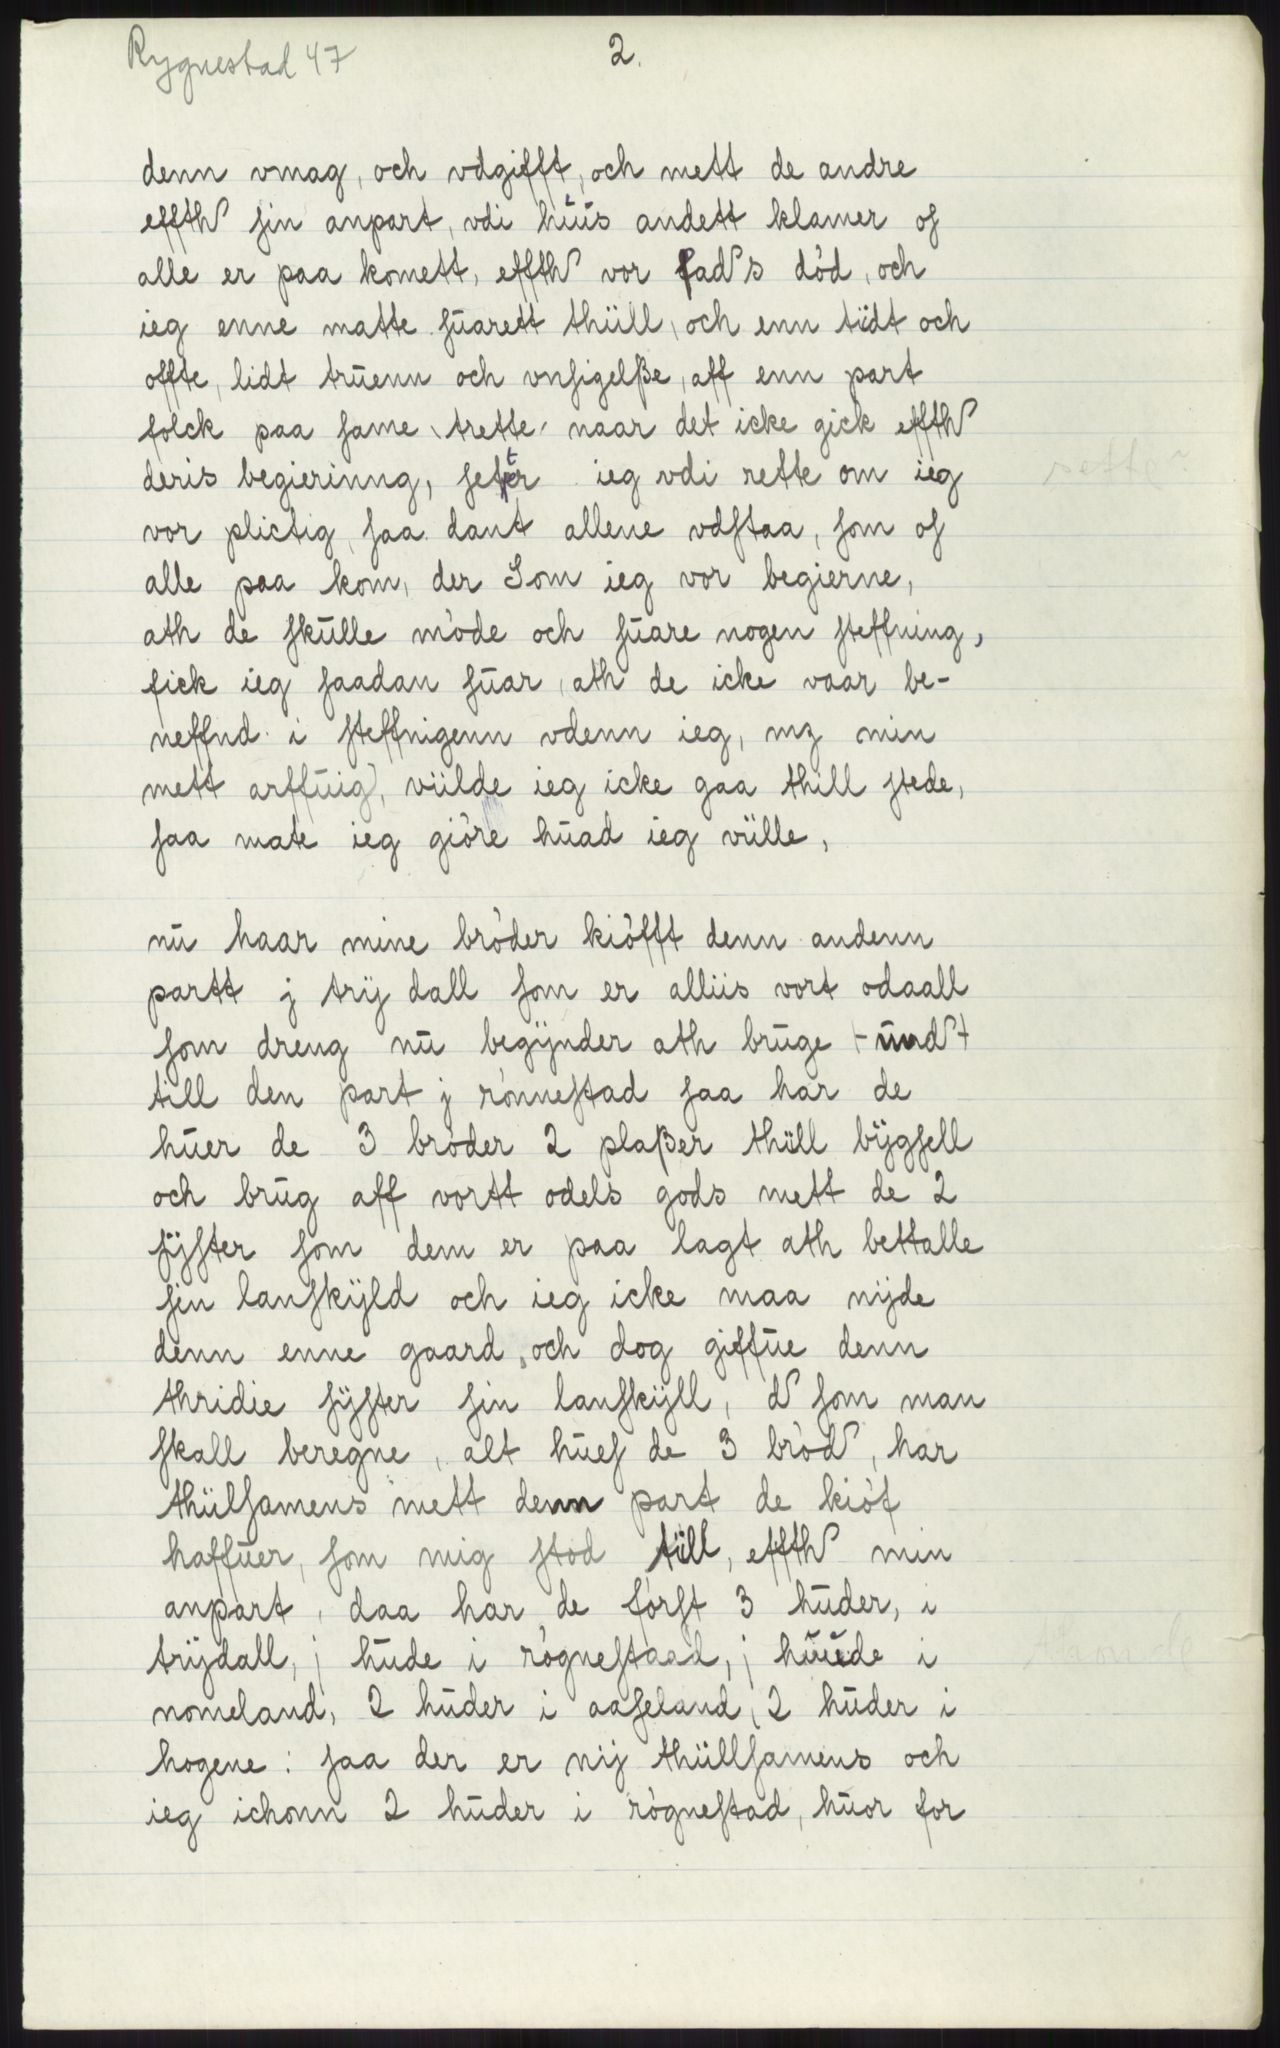 Rygnestad 47
2.
denn vmag, och vdgifft, och mett de andre
effth sin anpart, vdi huus andett klamer os
alle er paa komett, effth vor fad s död, och
ieg enne matte suarett thüll, och enn tidt och
offte, lidt truenn och vnsigelße, aff enn part
folck paa same trette naar det icke gick effth
deris begierinng, setter ieg vdi rette om ieg
sette?
vor plictig, saa dant allene vdstaa, som os
alle paa kom, der Som ieg vor begierne,
ath de skulle möde och suare nogen steffning,
fick ieg saadan suar, ath de icke vaar be-
neffnd i steffnigenn vdenn ieg, mz min
mett arffuig, viilde ieg icke gaa thill stede,
saa mate ieg giöre huad ieg vülle,
nu haar mine bröder kiöfft denn andenn
partt j trij dall som er alliis vort odaall
som dreng nu begÿnder ath bruge und
till den part j rönnestad saa har de
huer de 3 bröder 2 plaßer thüll bÿgsell
och brug aff vortt odels gods mett de 2
sÿster som dem er paa lagt ath bettalle
sin lanskÿld och ieg icke maa nijde
denn enne gaard, och dog giffue denn
thridie sÿster sin lanskÿll, d som man
skall beregne, alt hues de 3 bröd, har
thülsamens mett denn part de kiöf
haffuer, som mig stod till, effth min
anpart, daa har de först 3 huder, i
trijdall, j hude i rögnestaad, j huude i
nomeland, 2 huder i aaseland, 2 huder i
hogene: saa der er nij thüllsamens och
ieg ichonn 2 huder i rögnestad, huor for